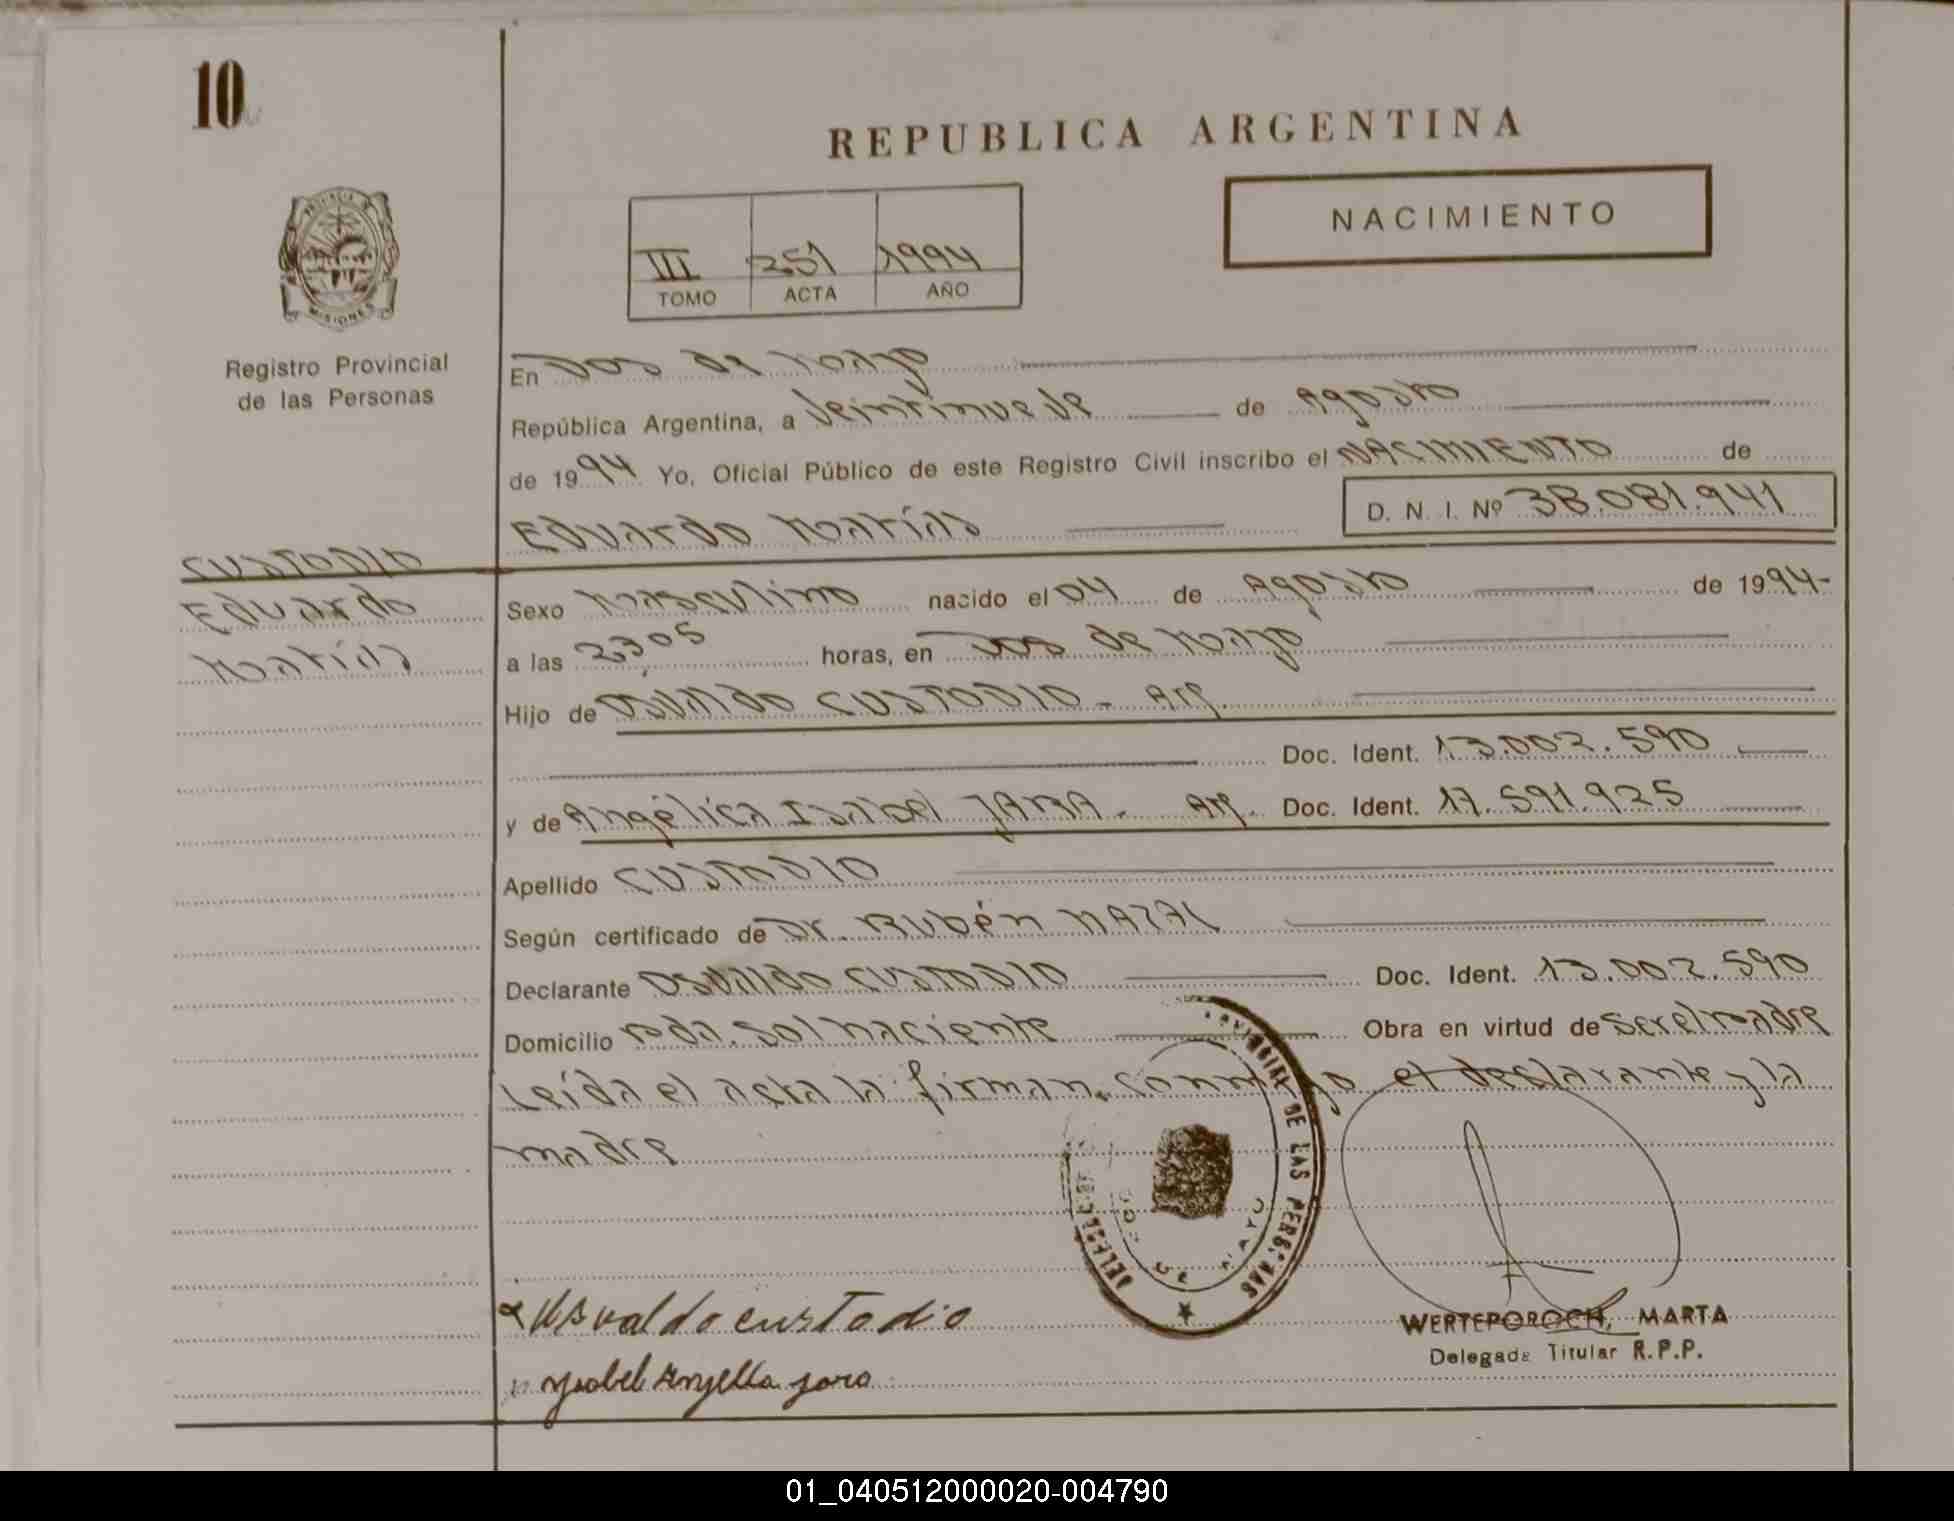 10
REPUBLICA ARGENTINA
NACIMIENTO
III 251 1994
TOMO ACTA AÑO
PROVINCIA DE
MISIONES
Registro Provincial
de las Personas
En Dos de Mayo
República Argentina, a veintinueve de Agosto
de 1994 Yo, Oficial Público de este Registro Civil inscribo el NACIMIENTO de
Eduardo Matías D. N. I. Nº 38.081.941
CUSTODIO
Eduardo
Matías
Sexo Masculino nacido el 04 de Agosto de 1994-
a las 2305 horas, en Dos de Mayo
Hijo de Osvaldo CUSTODIO - Arg.
Doc. Ident. 13.002.590
y de Angélica Isabel JARA - Arg. Doc. Ident. 17.591.925
Apellido CUSTODIO
Según certificado de Dr. Rubén
Declarante Osvaldo CUSTODIO Doc. Ident. 13.002.590
Domicilio Sol naciente Obra en virtud de ser el padre
Leída el acta la firman conmigo el declarante y la
madre
PROVINCIAL DE LAS PERSONAS
DOS DE MAYO
Osvaldo custodio
Ysabel Anjelica jara
WERTEPOROCH, MARTA
Delegada Titular R.P.P.
01_040512000020-004790